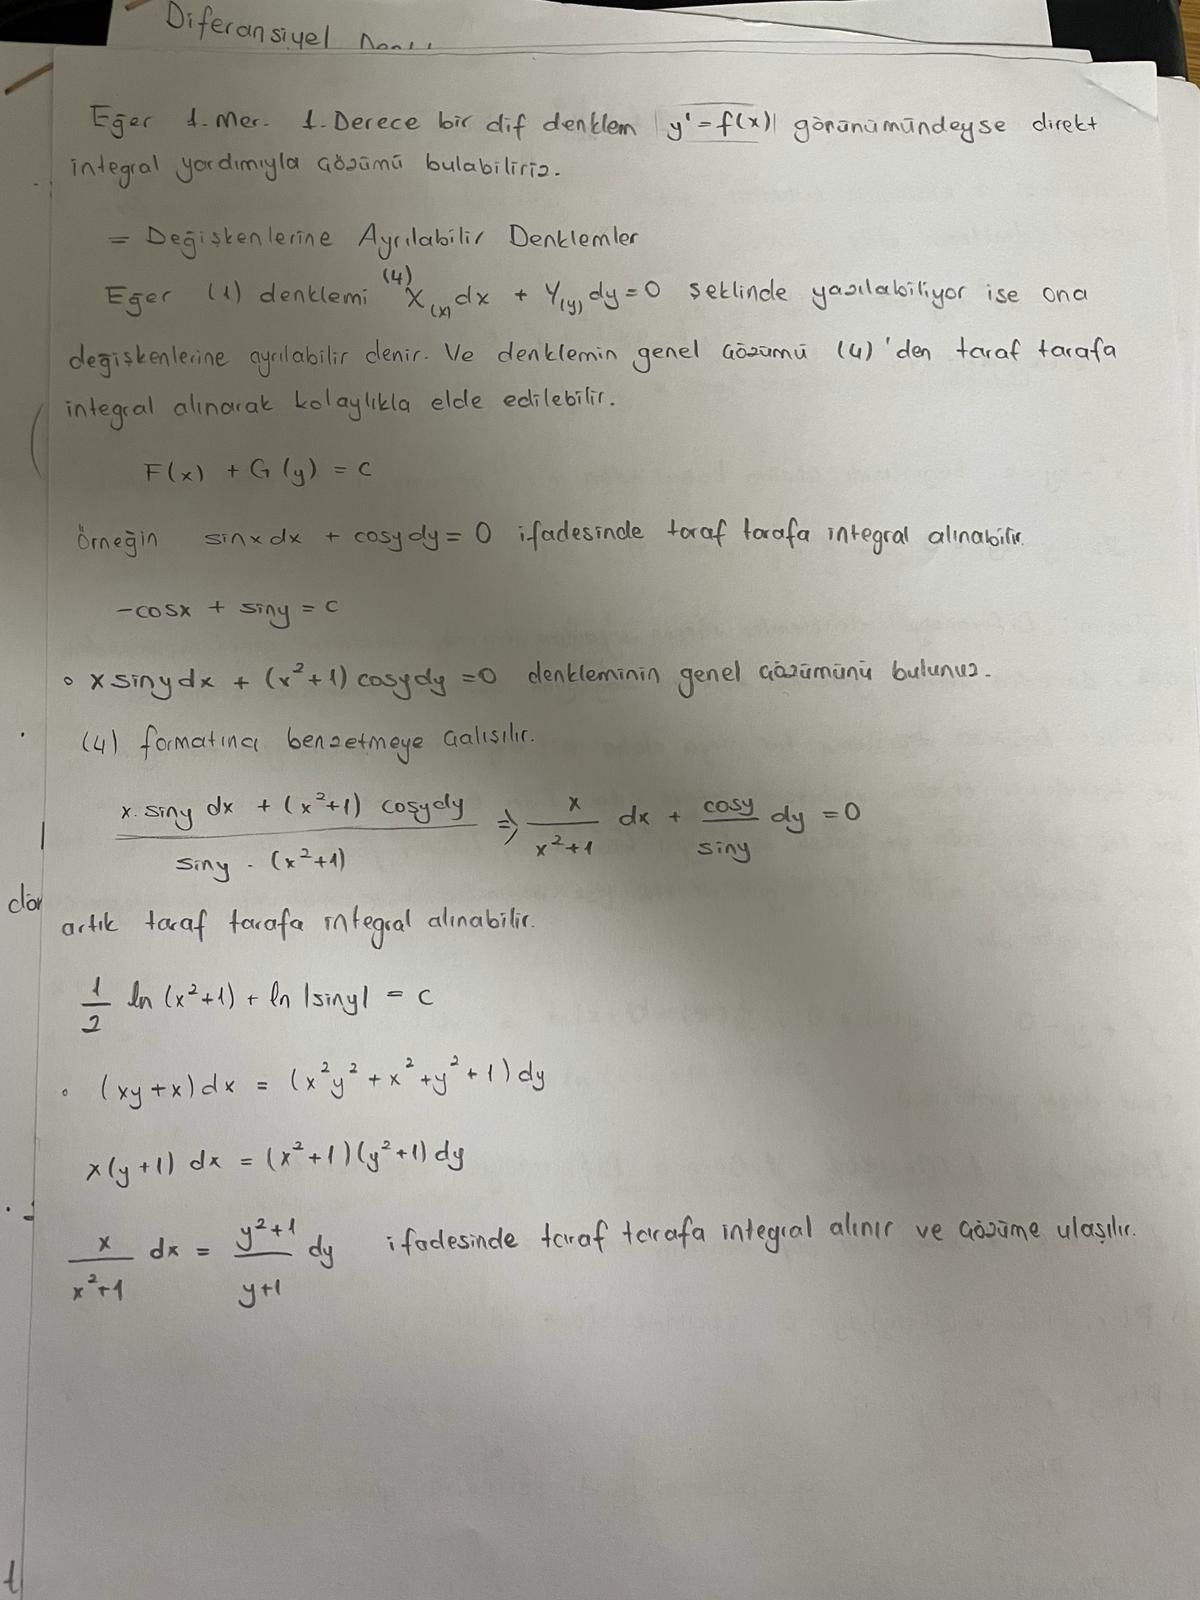 Diferansiyel
Eğer 1. Mer. 1. Derece bir dif denklem |y' = f(x)| görünümündeyse direkt
integral yardımıyla çözümü bulabiliriz.
= Değişkenlerine Ayrılabilir Denklemler
Eğer (1) denklemi (4) X(x) dx + Y(y) dy = 0 şeklinde yazılabiliyor ise ona
değişkenlerine ayrılabilir denir. Ve denklemin genel çözümü (4)'den taraf tarafa
integral alınarak kolaylıkla elde edilebilir.
F(x) + G(y) = c
Örneğin sinx dx + cosy dy = 0 ifadesinde taraf tarafa integral alınabilir.
-cosx + siny = c
° x siny dx + (x²+1) cosy dy = 0 denkleminin genel çözümünü bulunuz.
(4) formatına benzetmeye çalışılır.
x. siny dx + (x²+1) cosy dy / siny . (x²+1) ⇒ x / x²+1 dx + cosy / siny dy = 0
dör
artık taraf tarafa integral alınabilir.
1/2 ln (x²+1) + ln |siny| = c
° (xy+x) dx = (x²y² + x² + y² + 1) dy
x(y+1) dx = (x²+1)(y²+1) dy
x / x²+1 dx = y²+1 / y+1 dy ifadesinde taraf tarafa integral alınır ve çözüme ulaşılır.